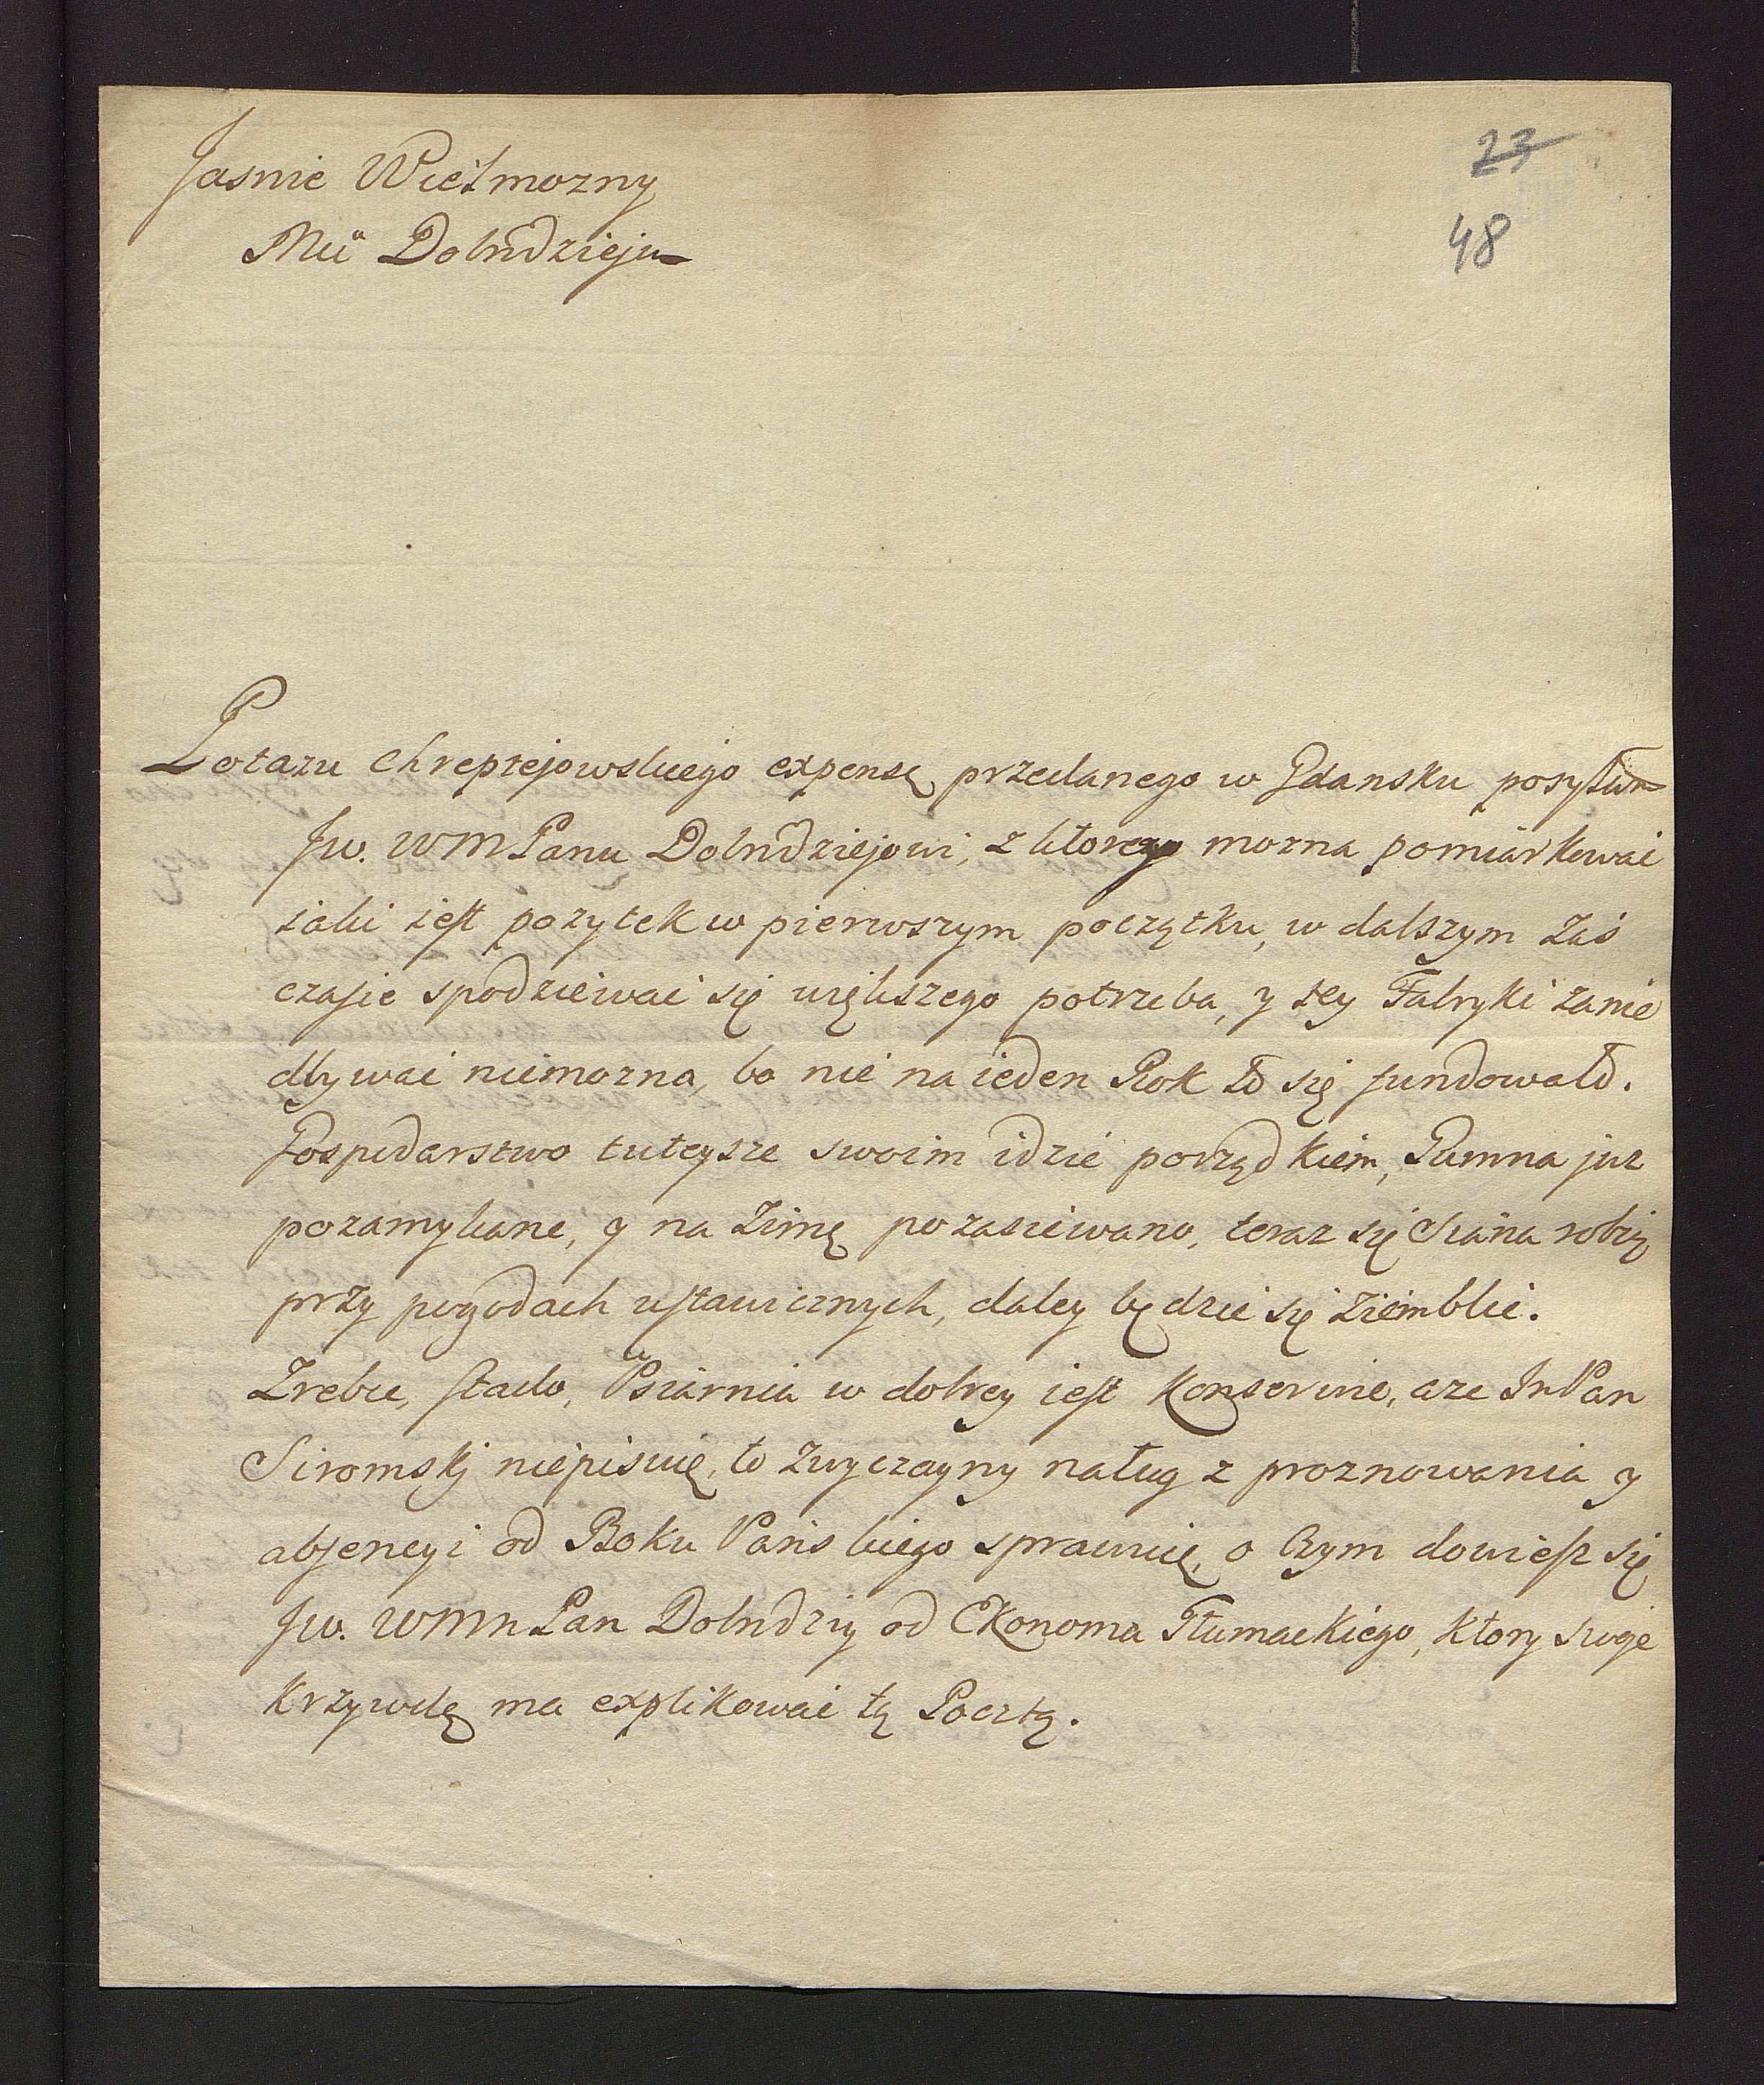 Jasnie Wielmozny
Mci Dobrodzieju
23
48
Potazu Chreptejowskiego expensę przedanego w Gdansku posyłam
Jw. WMPanu Dobrodziejowi, z ktorey mozna pomiarkowac
iaki iest pozytek w pierwszym początku, w dalszym zaś
czasie spodziewac się większego potrzeba, y tey Fabryki zanie
dbywac niemozna, bo nie na ieden Rok to się fundowało.
Gospodarstwo tuteysze swoim idzie porządkiem, Gumna juz
pozamykane, y na Zimę pozasiewano, teraz się Siana robią
przy pogodach ustawicznych, daley będzie się Ziemblic.
Zrebce, stado, Psiarnia w dobrey iest konserwie, a ze ImPan
Siromskj niepisuie, to zwyczayny naług z proznowania y
absencyi od Boku Panskiego sprawuie, o czym dowiesz się
Jw. WMM Pan Dobrodziey od Ekonoma Tłumackiego, ktory swoje
krzywdę ma explikowac tą Pocztą.